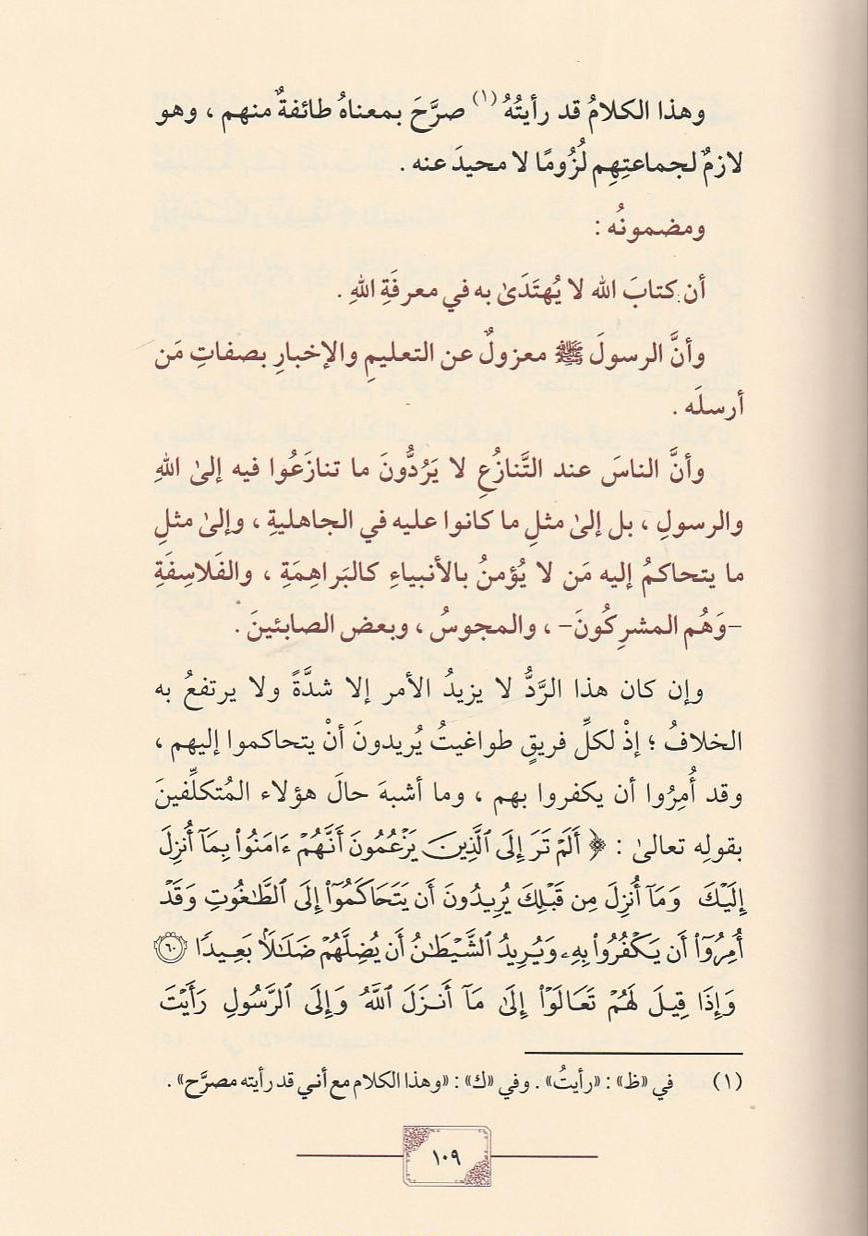 وهذا الكلامُ قد رأيتُهُ(١) صرَّحَ بمعناهُ طائفةٌ منهم ، وهو
لازمٌ لجماعتِهِم لُزُومًا لا محيدَ عنه .
ومضمونُه :
أن كتابَ الله لا يُهتَدَىٰ به في معرفَةِ اللهِ .
وأنَّ الرسولَ ﷺ معزولٌ عن التعليمِ والإخبارِ بصفاتِ مَن
أرسلَه .
وأنَّ الناسَ عند التَّنازُعِ لا يَرُدُّونَ ما تنازَعُوا فيه إلىٰ اللهِ
والرسولِ ، بل إلىٰ مثلِ ما كانوا عليه في الجاهليةِ ، وإلىٰ مثلِ
ما يتحاكمُ إليه مَن لا يُؤمنُ بالأنبياءِ كالبَراهِمَةِ ، والفَلاسِفَةِ
–وَهُم المشرِكُونَ– ، والمجوسُ ، وبعض الصابئينَ .
وإن كان هذا الرَّدُّ لا يزيدُ الأمر إلا شدَّةً ولا يرتفعُ به
الخلافُ ؛ إذْ لكلِّ فريقٍ طواغيتُ يُريدونَ أنْ يتحاكموا إليهم ،
وقد أُمِرُوا أن يكفروا بهم ، وما أشبهَ حالَ هؤلاء المُتكلِّفينَ
بقولِه تعالىٰ : ﴿ أَلَمۡ تَرَ إِلَى ٱلَّذِينَ يَزۡعُمُونَ أَنَّهُمۡ ءَامَنُواْ بِمَآ أُنزِلَ
إِلَيۡكَ وَمَآ أُنزِلَ مِن قَبۡلِكَ يُرِيدُونَ أَن يَتَحَاكَمُوٓاْ إِلَى ٱلطَّٰغُوتِ وَقَدۡ
أُمِرُوٓاْ أَن يَكۡفُرُواْ بِهِۦ وَيُرِيدُ ٱلشَّيۡطَٰنُ أَن يُضِلَّهُمۡ ضَلَٰلَۢا بَعِيدٗا ٦٠
وَإِذَا قِيلَ لَهُمۡ تَعَالَوۡاْ إِلَىٰ مَآ أَنزَلَ ٱللَّهُ وَإِلَى ٱلرَّسُولِ رَأَيۡتَ
(١) في «ظ» : «رأيتُ» . وفي «ك» : «وهذا الكلام مع أني قد رأيته مصرَّح» .
١٠٩